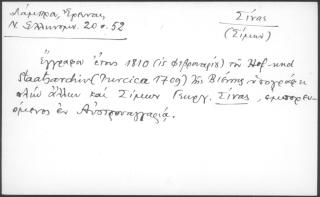 Λάμπρου, Έρευναι,
Ν. Ελληνομν. 20 σ. 52
Σίνας
(Σίμων)
Έγγραφον έτους 1810 (15 φεβρουαρίου) του Hof-und
Staatsarchiv (Turcica 1709) της Βιέννης υπογράφει
πλην άλλων και Σίμων Γεωργ. Σίνας, εμπορευ-
όμενος εν Αυστροουγγαρία.